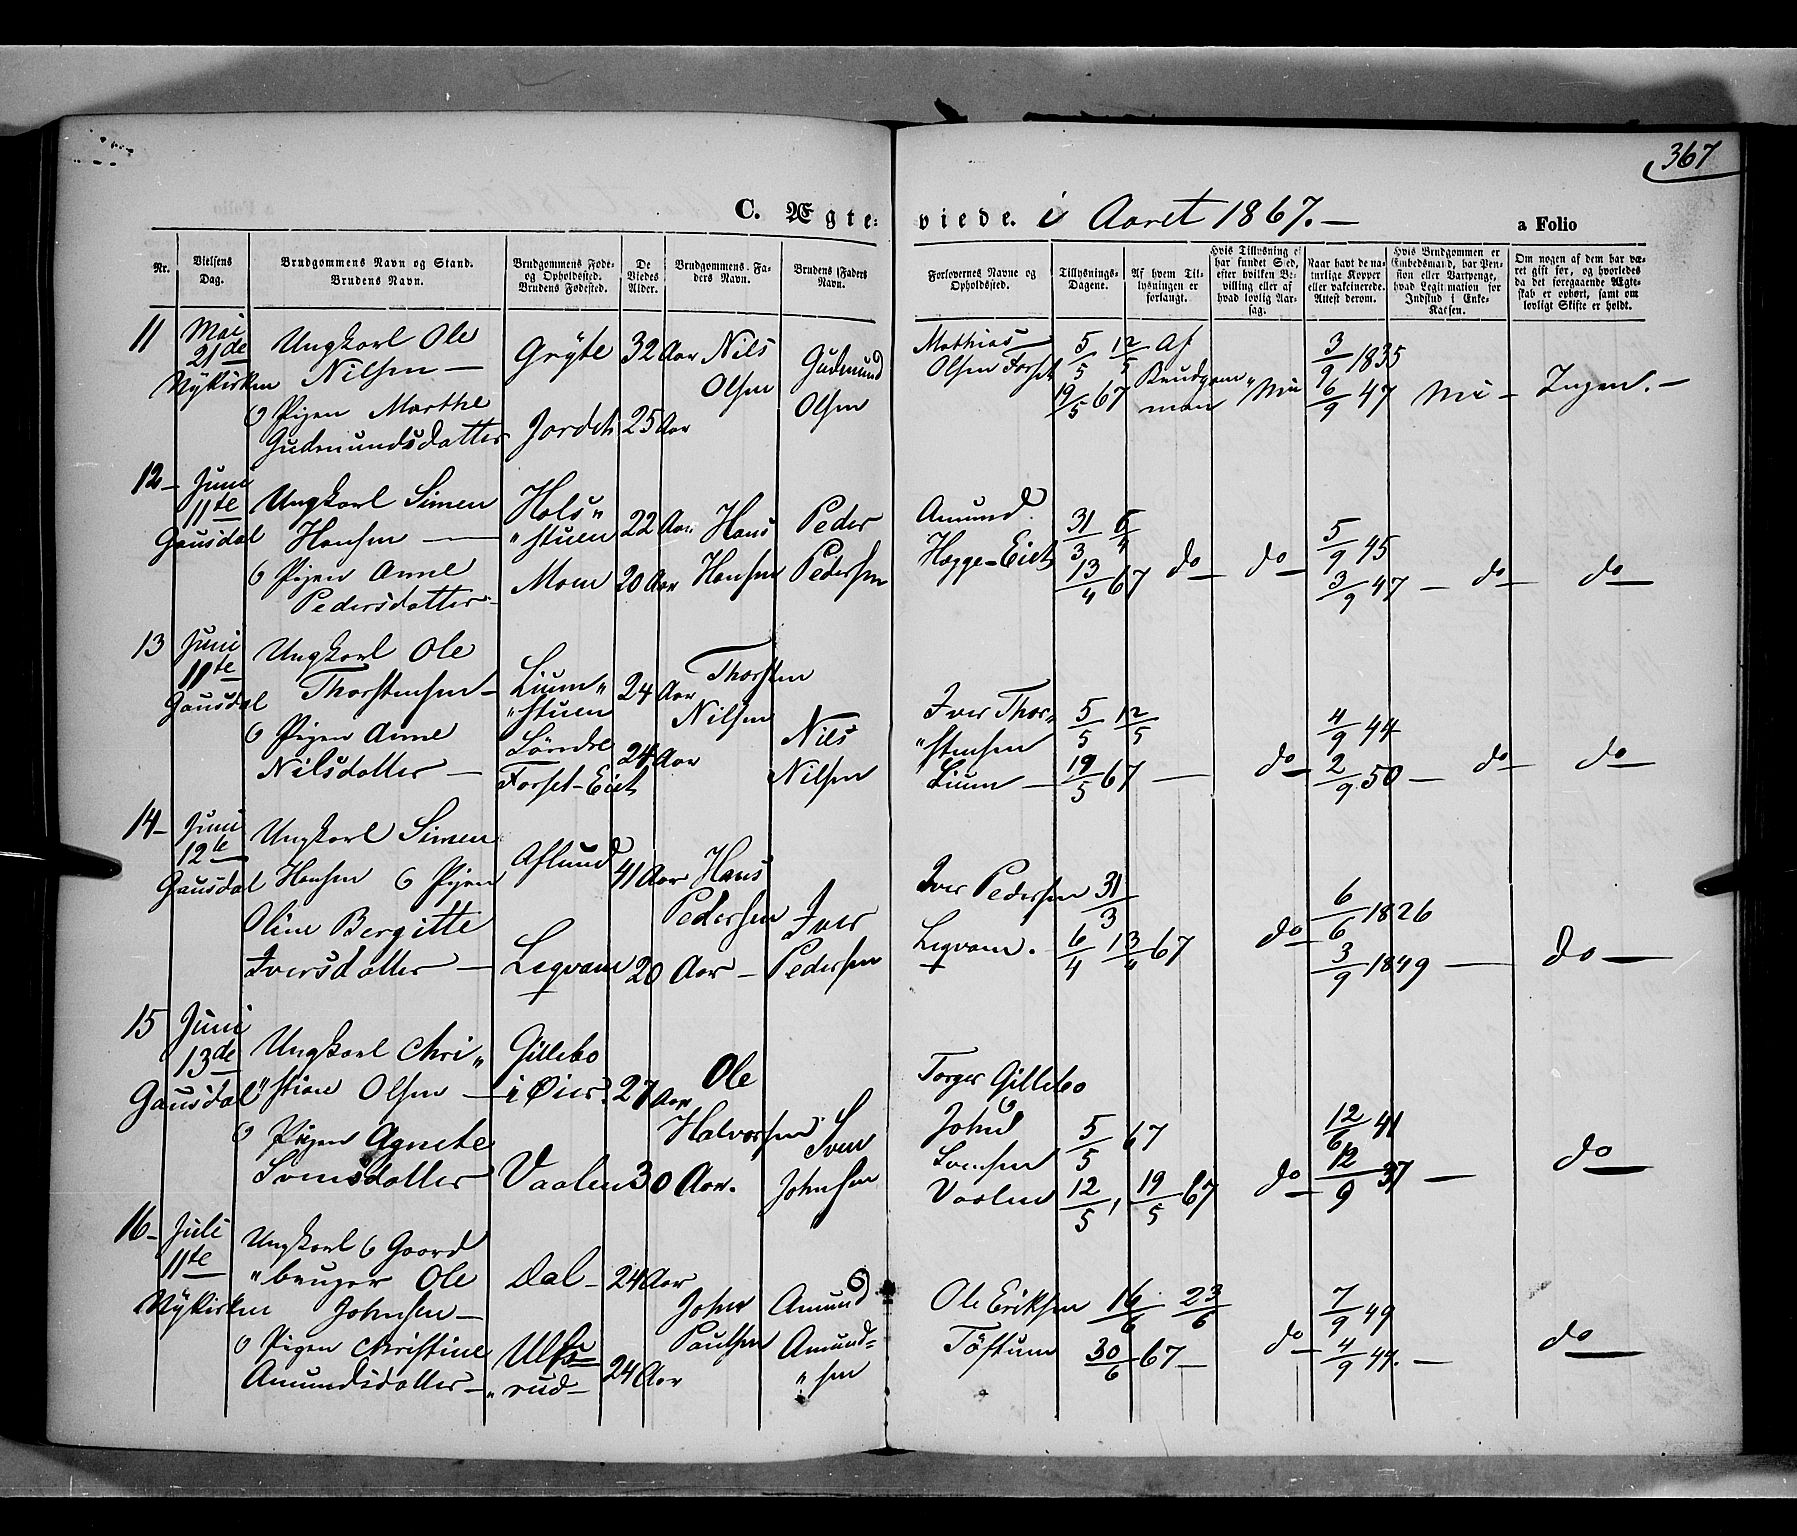 367
C. Ægte- viede. i Aaret 1867. —
a Folio
Nr.
Vielsens Dag.
Brudgommens Navn og Stand. Brudens Navn.
Brudgommens Føde- og Opholdssted. Brudens Fødested.
De Viedes Alder.
Brudgommens Faders Navn.
Brudens Faders Navn.
Forlovernes Navne og Opholdssted.
Tillysnings-Dagene.
Af hvem Tillysningen er forlangt.
Hvis Tillysning ei har fundet Sted, efter hvilken Bevilling eller af hvad lovlig Aarsag.
Naar havt de naturlige Kopper eller vakcinerede. Attest derom.
Hvis Brudgommen er Embedsmand, har Pension eller Vartpenge, hvad Legitimation for Indskud i Enkekassen.
Om nogen af dem har været gift før, og hvorledes da det foregaaende Ægteskab er ophørt, samt om lovligt Skifte er holdt.
11 Mai 21de Nykirken
Ungkarl Ole Nilsen —
Gryte 32 Aar Nils Olsen
Pigen Marthe Gudmundsdatter
Jordet 25 Aar Gudmund Olsen
Mathias Olsen Forset
5/5 12/5 19/5 67
Af Brudgommen
3/9 1835
6/9 47
Ingen. —
12 — Juni 11te Gausdal
Ungkarl Simen Hansen —
Hols„ „stuen 22 Aar Hans Hansen
Pigen Anne Pedersdatter
Moen 20 Aar Peder Pedersen
Amund Hegge-Eiet
31/3 6/4 13/4 67
do do
5/9 45
3/9 47 — do — do
13 Juni 11te Gausdal
Ungkarl Ole Thorstensen —
Lium„ „stuen 24 Aar Thorsten Nilsen
Pigen Anne Nilsdatter —
Søndre Forset-Eiet 24 Aar Nils Nilsen
Iver Thor„ „stensen Lium —
5/5 12/5 19/5 67 — do
4/9 44
2/9 50 — do — do
14 — Juni 12te Gausdal
Ungkarl Simen Hansen & Pigen
Aflund 41 Aar Hans Pedersen
Oline Bergitte Iversdatter —
Legvam 20 Aar — Iver Pedersen
Iver Pedersen Legvam.
31/3 6/4 13/4 67 do
6/6 1826
3/9 1849 — do
15 Juni 13de Gausdal
Ungkarl Chri„ „stian Olsen —
Gillebo i Øier. 27 Aar Ole Halvorsen
Pigen Agnete Svensdatter
Vaalen 30 Aar. Sven Johnsen
Torger Gillebo
John Svensen Vaalen
5/5 67 12/5, 19/5 67 do
12/6 41
12/9 37 — do
16 — Juli 11te Nykirken
Ungkarl & Gaard „bruger Ole Johnsen —
Dal — 24 Aar John Paulsen
Pigen Christine Amundsdatter —
Ulfs „rud — 24 Aar Amund Amund= „sen
Ole Eriksen Töftum
16/6 23/6 30/6 67 — do
7/9 49
4/9 44. — do